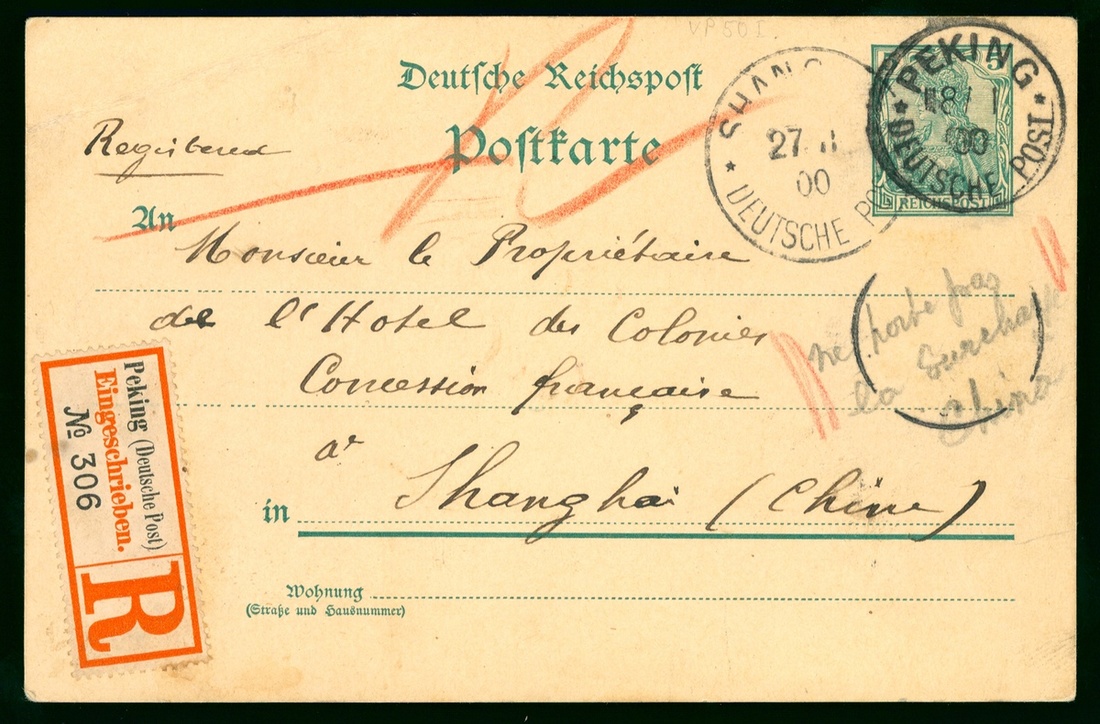 VP 50 I
Deutsche Reichspost
Postkarte
Registered
An
Monsieur le Propriétaire
de l'Hotel des Colonies
Concession française
à
in Shanghai (Chine)
Wohnung
(Straße und Hausnummer)
SHANG
27
00
* DEUTSCHE PO
5
REICHSPOST
PEKING
00
* DEUTSCHE POST *
ne porte pas
la surcharge
China
Peking (Deutsche Post)
Eingeschrieben.
№ 306
R